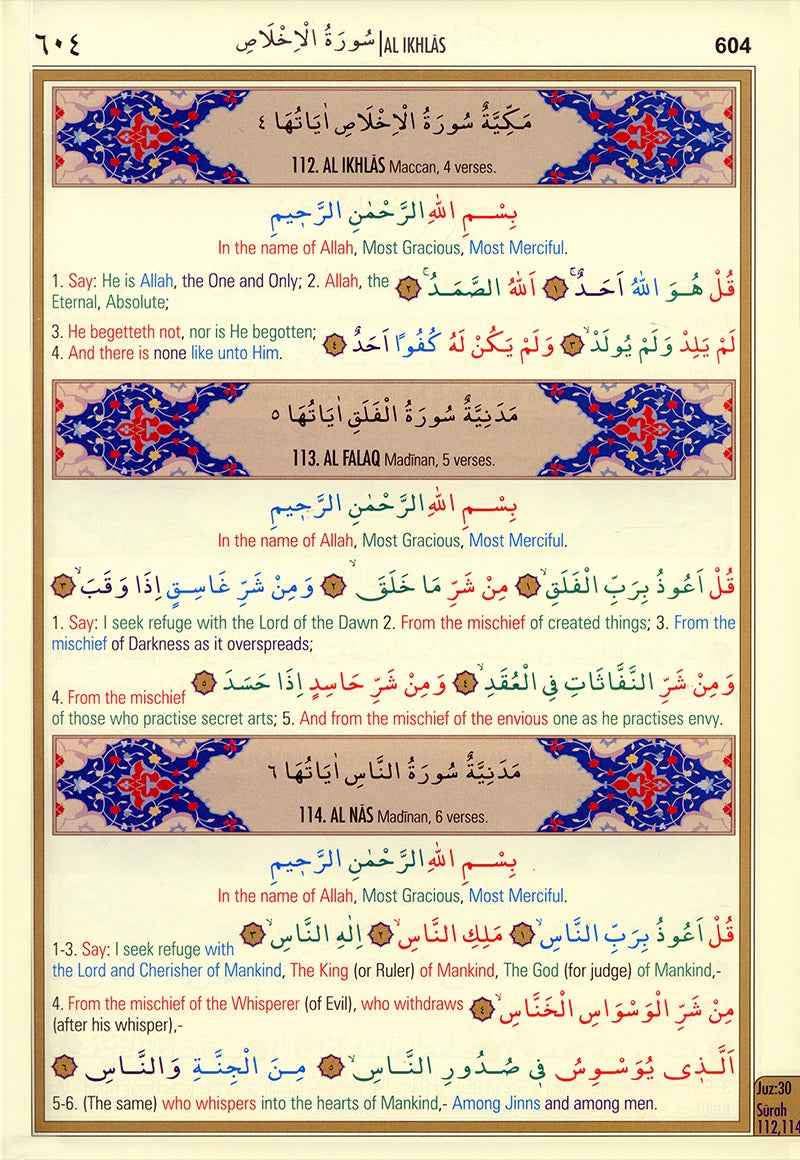 ٦٠٤ سُورَةُ الْاِخْلَاصِ | AL IKHLÂS 604
مَكِّيَّةٌ سُورَةُ الْاِخْلَاصِ اٰيَاتُهَا ٤
112. AL IKHLÂS Maccan, 4 verses.
بِسْــمِ اللّٰهِ الرَّحْمٰنِ الرَّحٖيمِ
In the name of Allah, Most Gracious, Most Merciful.
قُلْ هُوَ اللّٰهُ اَحَدٌۚ ﴿١﴾ اَللّٰهُ الصَّمَدُۚ ﴿٢﴾
1. Say: He is Allah, the One and Only; 2. Allah, the
Eternal, Absolute;
لَمْ يَلِدْ وَلَمْ يُولَدْۙ ﴿٣﴾ وَلَمْ يَكُنْ لَهُ كُفُوًا اَحَدٌ ﴿٤﴾
3. He begetteth not, nor is He begotten;
4. And there is none like unto Him.
مَدَنِيَّةٌ سُورَةُ الْفَلَقِ اٰيَاتُهَا ٥
113. AL FALAQ Madînan, 5 verses.
بِسْــمِ اللّٰهِ الرَّحْمٰنِ الرَّحٖيمِ
In the name of Allah, Most Gracious, Most Merciful.
قُلْ اَعُوذُ بِرَبِّ الْفَلَقِۙ ﴿١﴾ مِنْ شَرِّ مَا خَلَقَۙ ﴿٢﴾ وَمِنْ شَرِّ غَاسِقٍ اِذَا وَقَبَۙ ﴿٣﴾
1. Say: I seek refuge with the Lord of the Dawn 2. From the mischief of created things; 3. From the
mischief of Darkness as it overspreads;
وَمِنْ شَرِّ النَّفَّاثَاتِ فِي الْعُقَدِۙ ﴿٤﴾ وَمِنْ شَرِّ حَاسِدٍ اِذَا حَسَدَ ﴿٥﴾
4. From the mischief
of those who practise secret arts; 5. And from the mischief of the envious one as he practises envy.
مَدَنِيَّةٌ سُورَةُ النَّاسِ اٰيَاتُهَا ٦
114. AL NÂS Madînan, 6 verses.
بِسْــمِ اللّٰهِ الرَّحْمٰنِ الرَّحٖيمِ
In the name of Allah, Most Gracious, Most Merciful.
قُلْ اَعُوذُ بِرَبِّ النَّاسِۙ ﴿١﴾ مَلِكِ النَّاسِۙ ﴿٢﴾ اِلٰهِ النَّاسِۙ ﴿٣﴾
1-3. Say: I seek refuge with
the Lord and Cherisher of Mankind, The King (or Ruler) of Mankind, The God (for judge) of Mankind,-
مِنْ شَرِّ الْوَسْوَاسِ الْخَنَّاسِۙ ﴿٤﴾
4. From the mischief of the Whisperer (of Evil), who withdraws
(after his whisper),-
اَلَّذٖى يُوَسْوِسُ فٖى صُدُورِ النَّاسِۙ ﴿٥﴾ مِنَ الْجِنَّةِ وَالنَّاسِ ﴿٦﴾
5-6. (The same) who whispers into the hearts of Mankind,- Among Jinns and among men.
Juz:30
Sûrah
112,114